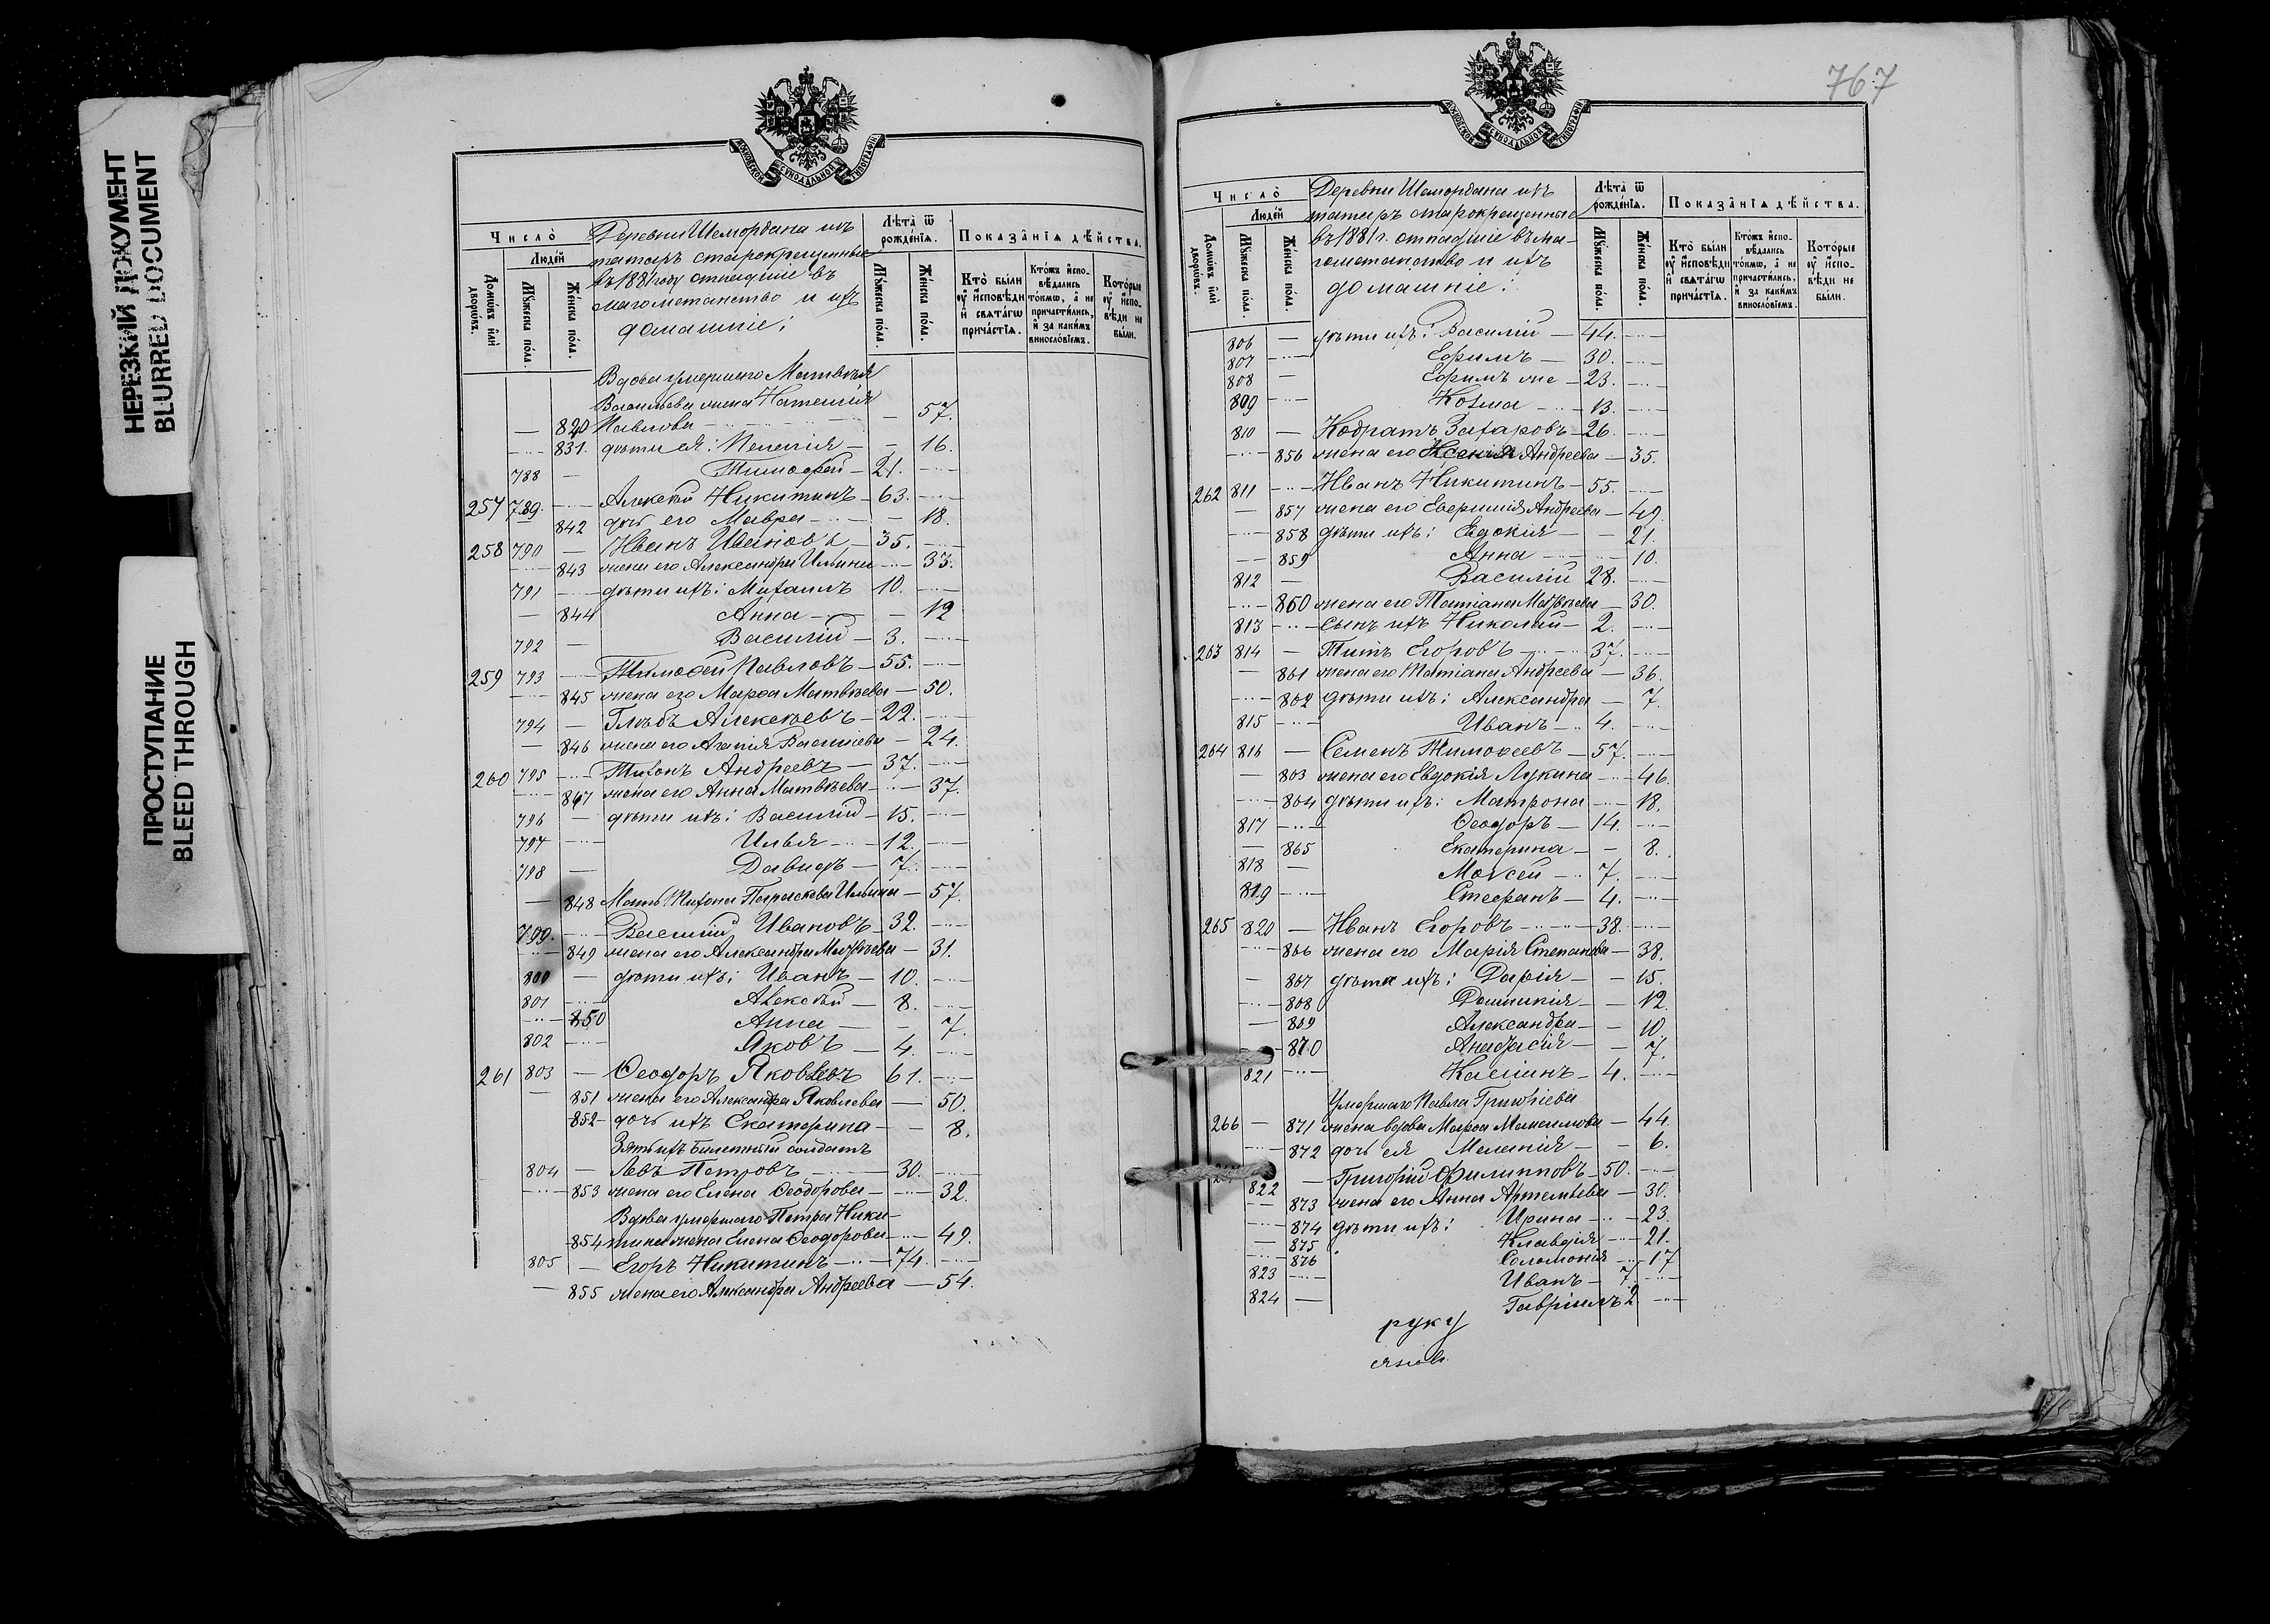 НЕРЕЗКИЙ ДОКУМЕНТ
BLURRED DOCUMENT
ПРОСТУПАНИЕ
BLEED THROUGH
МОСКОВСКОЙ СѴНОДАЛЬНОЙ ТИПОГРАФІИ
Число̀
Людей
Домѡвъ или дворѡвъ.
Мꙋжеска пола.
Женска пола.
Деревни Шемордана изъ
татаръ старокрещенные
въ 1881 году отпадшіе въ
магометанство и ихъ
домашніе:
Лѣта ѿ рожденія.
Мꙋжеска пола.
Женска пола.
Показанія дѣйства.
Кто были оу исповѣди и свѧтагѡ причастїѧ.
Ктожъ исповѣдались токмѡ, а не причастились, и за какимъ винословїемъ.
Которые оу исповѣди не были.
Вдова умершаго Матвѣя
Васильева жена Наталія
— 840 Павлова — — 57.
— 831. дѣти ея: Пелагія — — 16.
788 — Тимофей — 21. —
257 789. — Алексѣй Никитинъ — 63. —
— 842 дочь его Мавра — — 18.
258 790 — Иванъ Ивановъ — 35. —
— 843 жена его Александра Ильина — 33.
791 — дѣти ихъ: Михаилъ 10. —
— 844 Анна — — 12
792 — Василій — 3. —
259 793 — Тимоѳей Павловъ — 55. —
— 845 жена его Марѳа Матвѣева — 50.
794 — Глѣбъ Алексѣевъ — 22. —
— 846 жена его Агапія Васильева — 24.
260 795 — Тихонъ Андреевъ — 37. —
— 847 жена его Анна Матвѣева — 37.
796 — дѣти ихъ: Василій — 15. —
797 — Илья — 12. —
798 — Давидъ — 7. —
— 848 Мать Тихона Параскева Ильина — 57.
799. — Василій Ивановъ — 32. —
— 849 жена его Александра Матвѣева — 31.
800 — дѣти ихъ: Иванъ — 10. —
801 — Алексѣй — 8. —
— 850 Анна — — 7.
802 — Яковъ — 4. —
261 803 — Ѳеодоръ Яковлевъ 61. —
— 851 жена его Александра Яковлева — 50.
852 — дочь ихъ Екатерина — — 8.
Зять ихъ билетный солдатъ
804 — Левъ Петровъ — 30. —
— 853 жена его Елена Ѳеодорова — 32.
Вдова умершаго Петра Ники-
854 тина жена Елена Ѳеодорова — 49.
805 — Егоръ Никитинъ — 74. —
— 855 жена его Александра Андреева — 54.
767
МОСКОВСКОЙ СѴНОДАЛЬНОЙ ТИПОГРАФІИ
Число̀
Людей
Домѡвъ или дворѡвъ.
Мꙋжеска пола.
Женска пола.
Деревни Шемордана изъ
татаръ старокрещенные
въ 1881 г. отпадшіе въ ма-
гометанство и ихъ
домашніе:
Лѣта ѿ рожденія.
Мꙋжеска пола.
Женска пола.
Показанія дѣйства.
Кто были оу исповѣди и свѧтагѡ причастїѧ.
Ктожъ исповѣдались токмѡ, а не причастились, и за какимъ винословїемъ.
Которые оу исповѣди не были.
806 — дѣти ихъ: Василій — 44. —
807 — Ефимъ — 30. —
808 — Ефимъ же — 23. —
809 — Козма — 13. —
810 — Кодратъ Захаровъ — 26. —
— 856 жена его Ксенія Андреева — 35.
262 811 — Иванъ Никитинъ — 55. —
— 857 жена его Андреева — 49.
— 858 дѣти ихъ: Евдокія — — 21.
— 859 Анна — — 10.
812 — Василій 28. —
— 860 жена его Татіана Матвѣева — 30.
813 — сынъ ихъ Николай — 2. —
263 814 — Титъ Егоровъ — 37. —
— 861 жена его Татіана Андреева — 36.
— 862 дѣти ихъ: Александра — 7.
815 — Иванъ — 4. —
264 816 — Семенъ Тимоѳеевъ — 57. —
— 863 жена его Евдокія Лукина — 46.
— 864 дѣти ихъ: Матрона — 18.
817 — Ѳеодоръ — 14. —
— 865 Екатерина — — 8.
818 — Моѵсей — 7. —
819 — Стефанъ — 4. —
265 820 — Иванъ Егоровъ — 38. —
— 866 жена его Марія Степанова — 38.
— 867 дѣти ихъ: Дарія — — 15.
— 868 Домникія — — 12.
— 869 Александра — — 10
— 870 Анастасія — — 7.
821 — 4. —
Умершаго Павла Григорьева
266 — 871 жена вдова Марѳа Максимова — 44.
— 872 дочь ея Меланія — — 6.
822 — Григорій Филипповъ — 50. —
— 873 жена его Анна Артемьева — 30.
— 874 дѣти ихъ: Ирина — 23.
— 875 Клавдія — 21.
— 876 Соломонія — 17
823 — Иванъ — 7. —
824 — Гавріилъ 2 —
руку